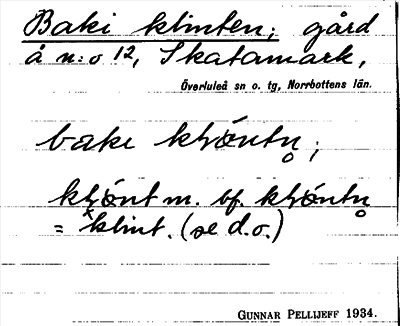 Baki klinten; gård
å n:o 12, Skatamark,
Överluleå sn o. tg, Norrbottens län.
bake
m. bf.
= klint. (se d.o.)
GUNNAR PELLIJEFF 1934.